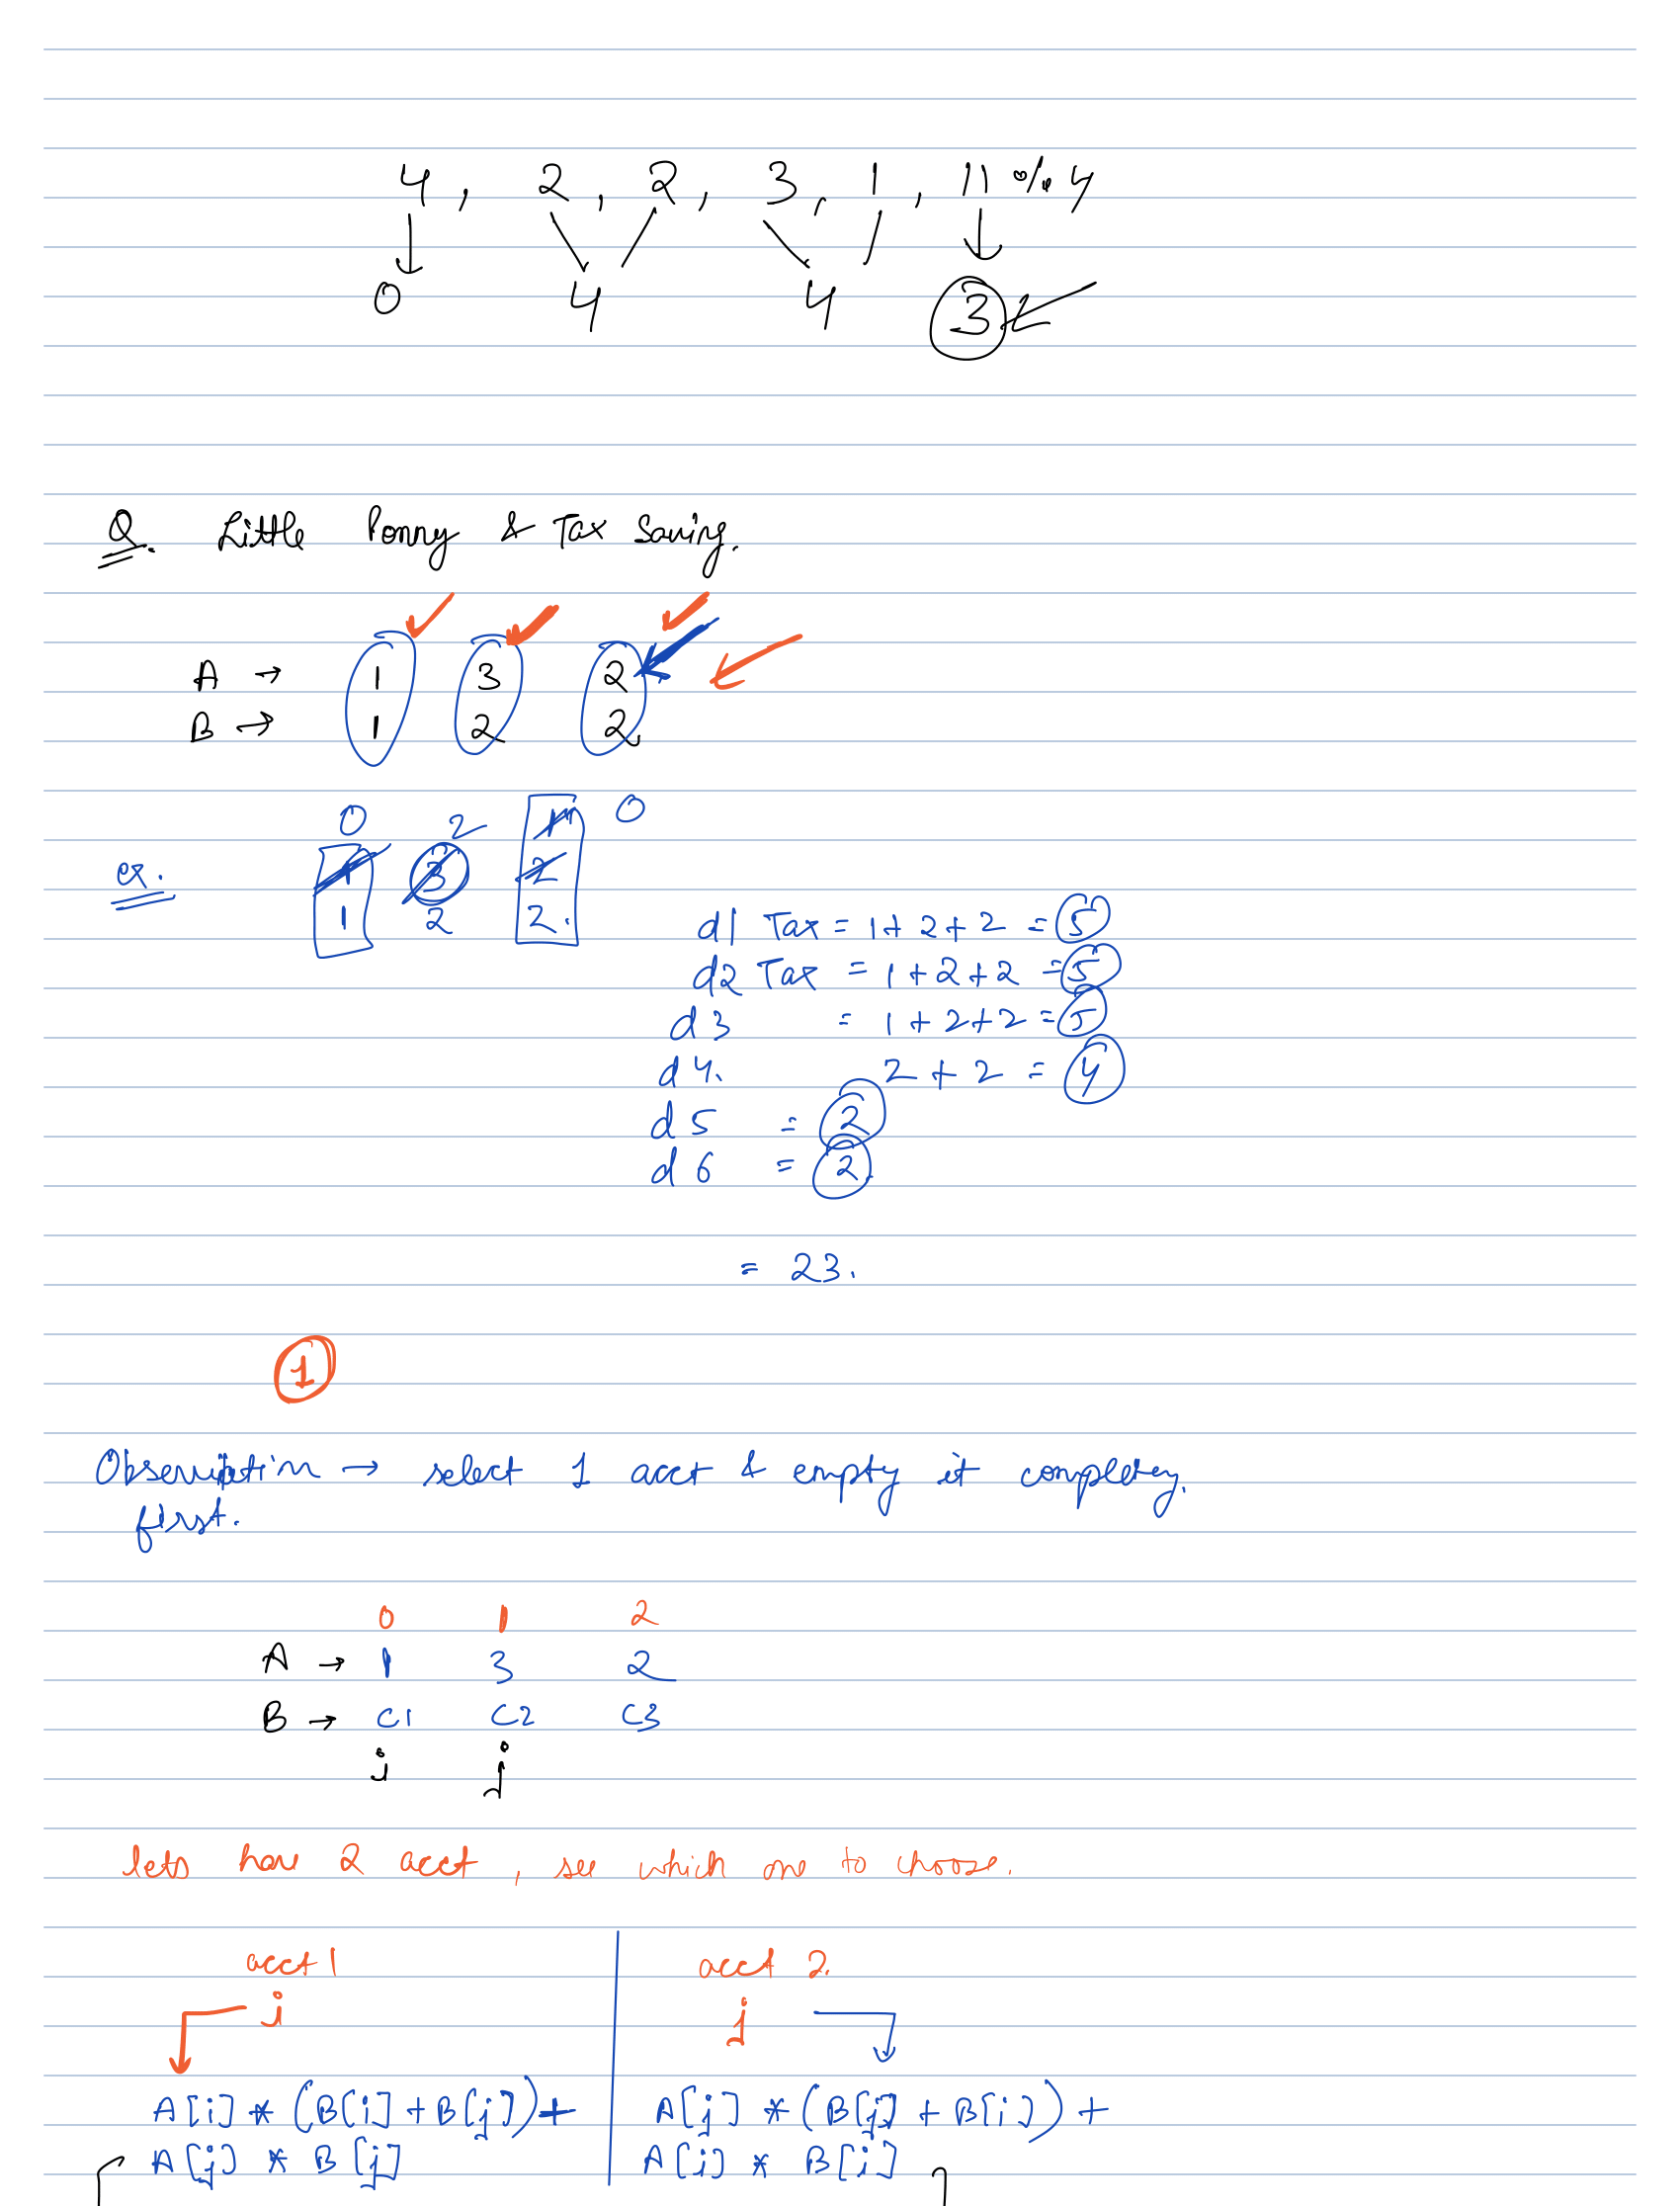 4 , 2 , 2 , 3 , 1 , 11 % 4
0 4 4 3
Q. Little Ponny & Tax Saving.
A → 1 3 2
B → 1 2 2
0 2 1 0
ex. 1 3 2
1 2 2.
d1 Tax = 1 + 2 + 2 = 5
d2 Tax = 1 + 2 + 2 = 5
d3 = 1 + 2 + 2 = 5
d4. 2 + 2 = 4
d5 = 2
d6 = 2.
= 23.
1
→ select 1 acct & empty it completey.
first.
0 1 2
A → 1 3 2
B → C1 C2 C3
i j
lets have 2 acct , see which one to choose.
acct 1 acct 2.
i j
A[i] * (B[i] + B[j]) + A[j] * (B[j] + B[i]) +
A[j] * B[j] A[i] * B[i]